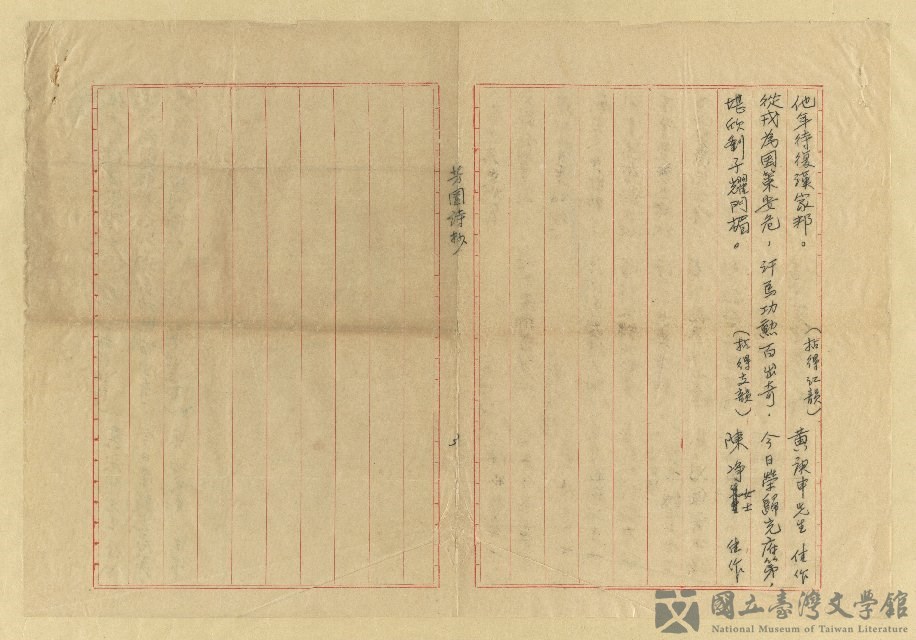 他年待復漢家邦。（拈得江韻）黃庚申先生 佳作
從戎為國策安危，汗馬功勲百出奇．今日榮歸光府第，
堪欣劉子耀門楣。（拈得支韻）陳淨 女士 佳作
芳園詩抄
國立臺灣文學館
National Museum of Taiwan Literature